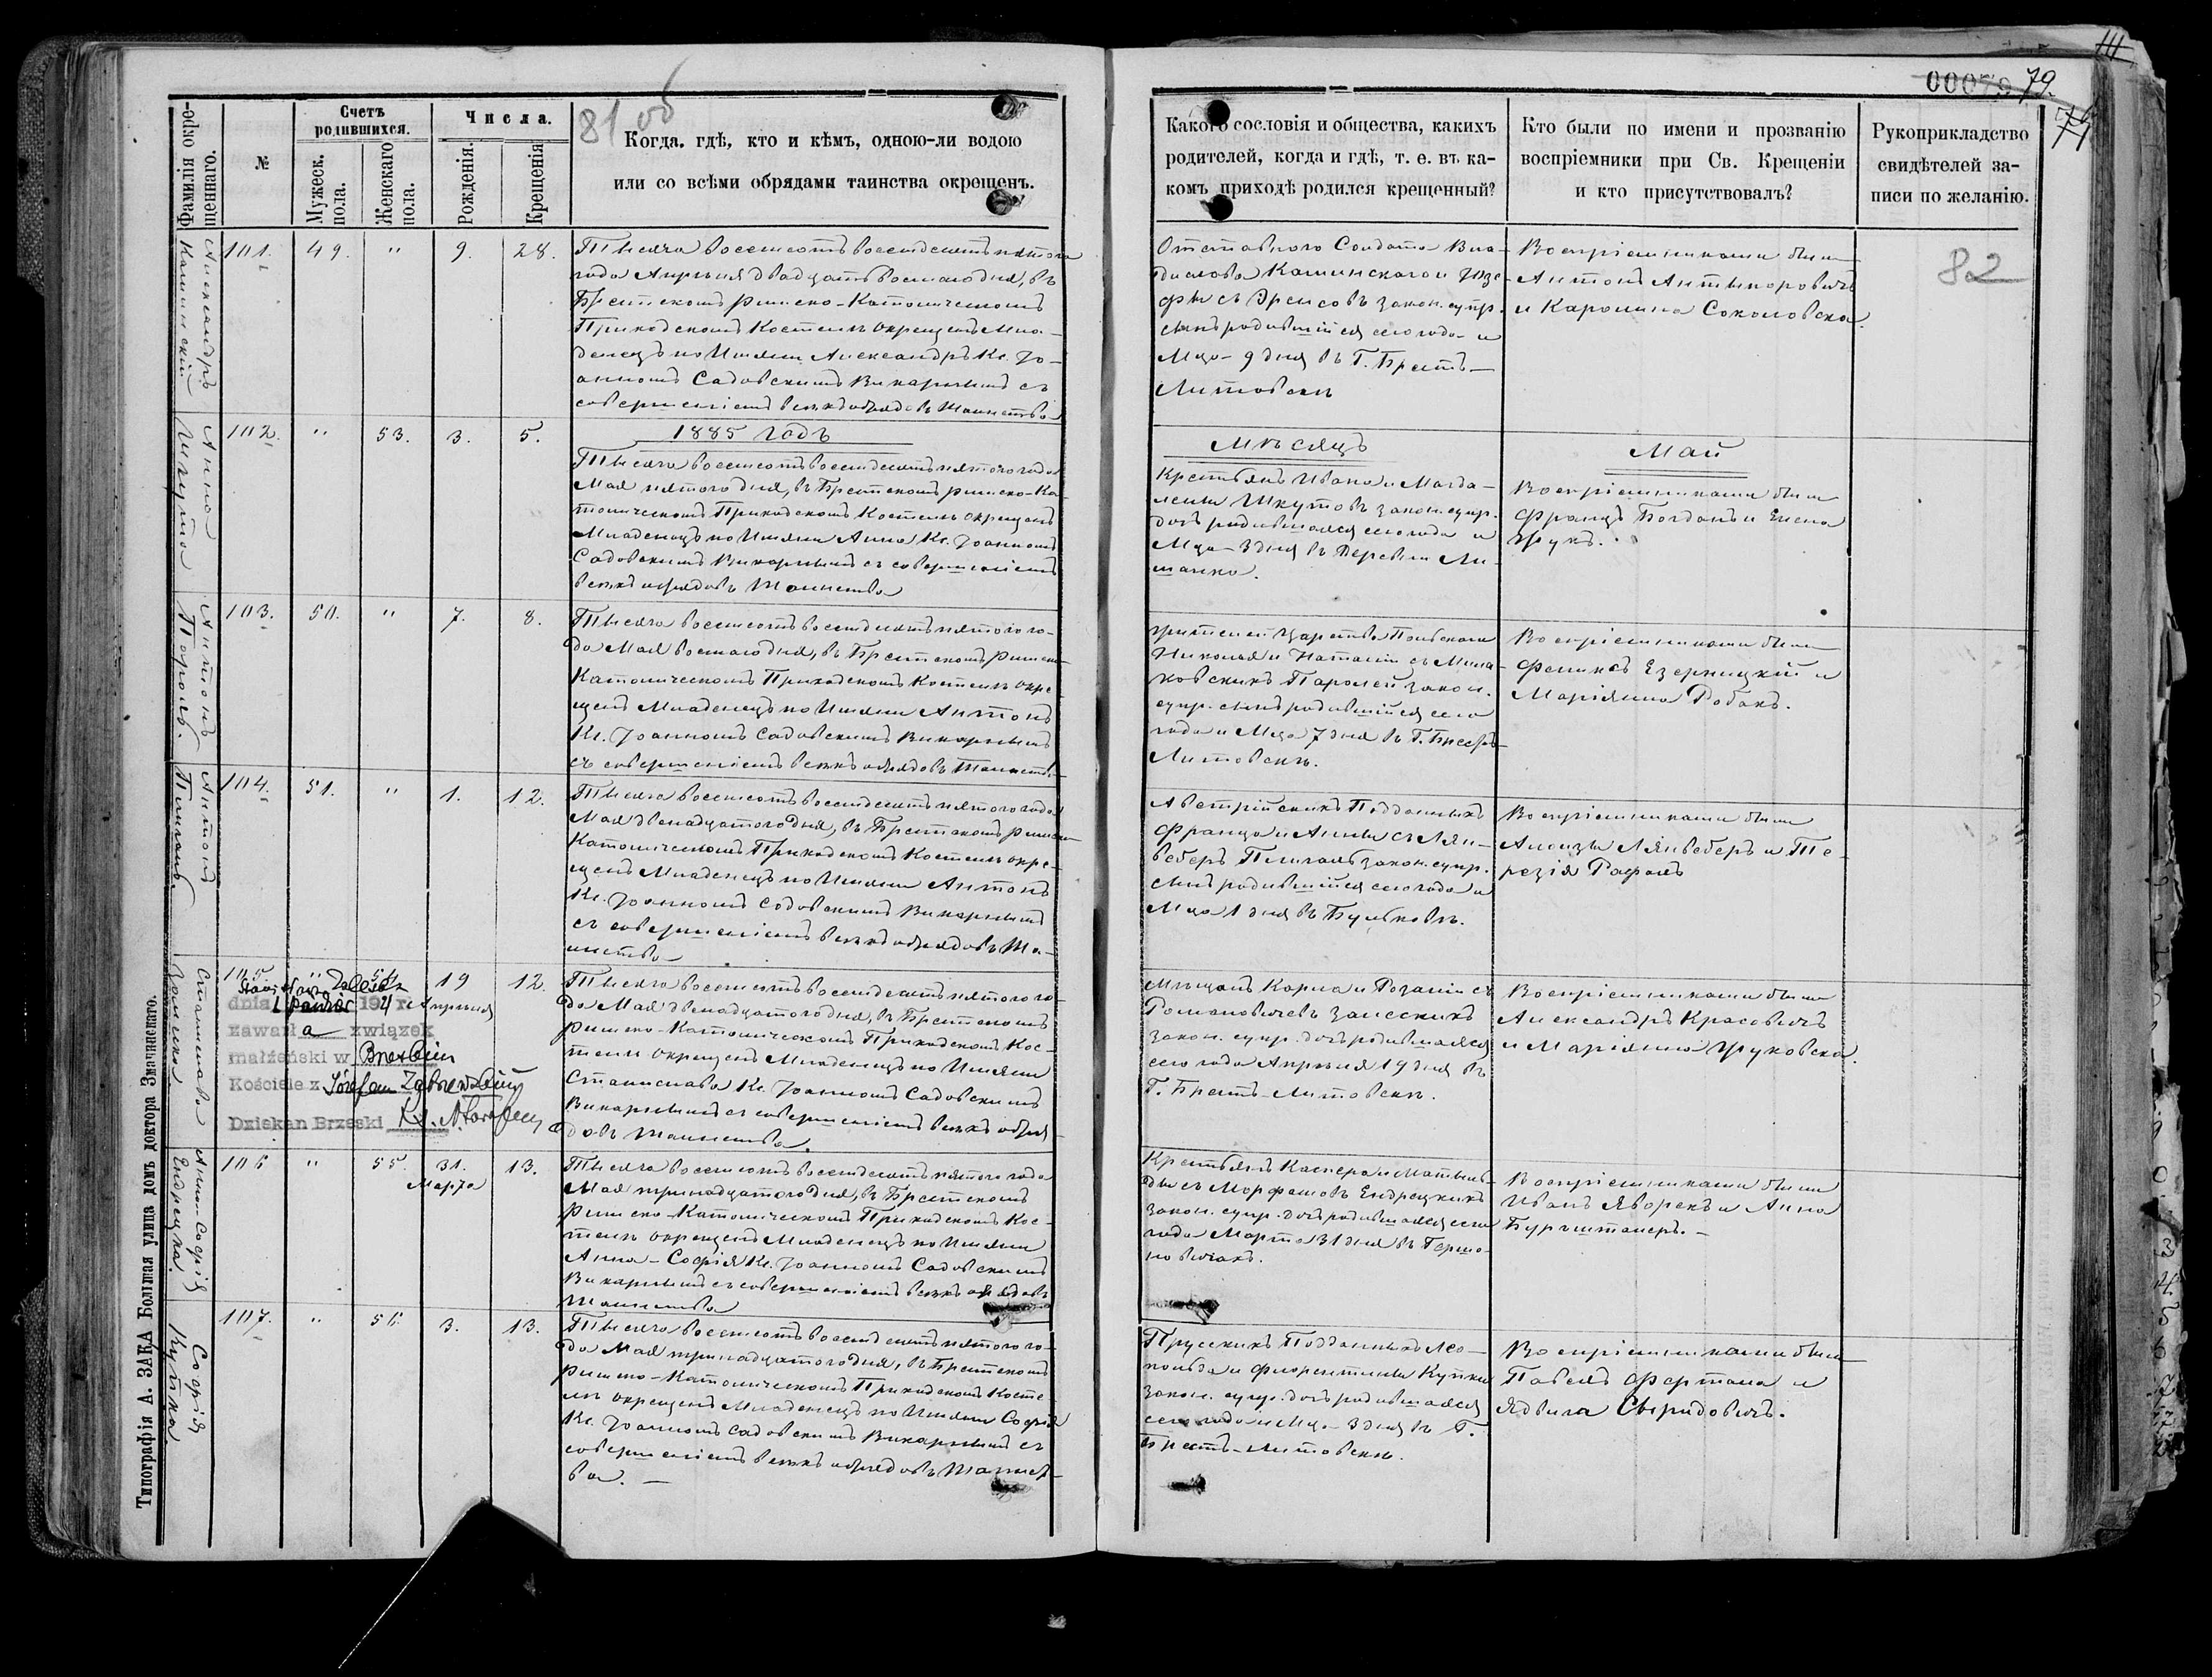 81 об
Фамилія окре-
щеннаго.
№
Счетъ
родившихся.
Мужеск.
пола.
Женскаго
пола.
Числа.
Рожденія.
Крещенія
Когда, гдѣ, кто и кѣмъ, одною-ли водою
или со всѣми обрядами таинства окрещенъ.
Александръ
Каминскій
101. 49. " 9. 28.
Тысяча восемсотъ восемдесятъ пятого
года Апрѣля двадцать восмаго дня, въ
Брестскомъ римско-Католическомъ
Приходскомъ Костелѣ окрещенъ Мла-
денецъ по Имяни Александръ Кс. Іо-
анномъ Садовскимъ Викарнымъ съ
совершеніемъ всѣхъ обрядовъ Таинства
Анна
Шкута
102. " 53. 3. 5.
1885 годъ
Тысяча восемсотъ восемдесятъ пятого года
Мая пятого дня, въ Брестскомъ римско-Ка-
толическомъ Приходскомъ Костелѣ окрещенъ
Младенецъ по Имяни Анна Кс. Іоанномъ
Садовскимъ Викарнымъ съ совершеніемъ
всѣхъ обрядовъ Таинства
Антонъ
Пароль.
103. 50. " 7. 8.
Тысяча восемсотъ восемдесятъ пятого го-
да Мая восмаго дня, въ Брестскомъ римско-
Католическомъ Приходскомъ Костелѣ окре-
щенъ Младенецъ по Имяни Антонъ
Кс. Іоанномъ Садовскимъ Викарнымъ
съ совершеніемъ всѣхъ обрядовъ Таинства
Антонъ
104. 51. " 1. 12.
Тысяча восемсотъ восемдесятъ пятого года
Мая двенадцатого дня, въ Брестскомъ римско
Католическомъ Приходскомъ Костелѣ окре-
щенъ Младенецъ по Имяни Антонъ
Кс. Іоанномъ Садовскимъ Викарнымъ
съ совершеніемъ всѣхъ обрядовъ Та-
инства
Станислава
Залеска
105 " 54 19 12.
Апрѣля
dnia paźdz 1921 r.
zawarła związek
małżeński w Brzeskim
Kościele z Józefem
Dziekan Brzeski Ks.
Тысяча восемсотъ восемдесятъ пятого го-
да Мая двенадцатого дня, въ Брестскомъ
римско-Католическомъ Приходскомъ Кос-
телѣ окрещенъ Младенецъ по Имяни
Станислава Кс. Іоанномъ Садовскимъ
Викарнымъ съ совершеніемъ всѣхъ обря-
довъ Таинства.
Анна-Софія
Ендрецка.
106 " 55. 31. 13.
Марта
Тысяча восемсотъ восемдесятъ пятого года
Мая тринадцатого дня, въ Брестскомъ
римско-Католическомъ Приходскомъ Кос-
телѣ окрещенъ Младенецъ по Имяни
Анна-Софія Кс. Іоанномъ Садовскимъ
Викарнымъ съ совершеніемъ всѣхъ обрядовъ
Таинства
Софія
Купка.
107. " 56 3. 13.
Тысяча восемсотъ восемдесятъ пятого го-
да Мая тринадцатого дня, въ Брестскомъ
римско-Католическомъ Приходскомъ Косте-
лѣ окрещенъ Младенецъ по Имяни Софія
Кс. Іоанномъ Садовскимъ Викарнымъ съ
совершеніемъ всѣхъ обрядовъ Таинст-
ва. —
Типографія А. ЗАКА Большая улица домъ доктора Значинскаго.
00079 79.
Какого сословія и общества, какихъ
родителей, когда и гдѣ, т. е. въ ка-
комъ приходѣ родился крещенный?
Кто были по имени и прозванію
воспріемники при Св. Крещеніи
и кто присутствовалъ?
Рукоприкладство
свидѣтелей за-
писи по желанію.
82
Отставного Солдата Вла-
дислава Каминского и Юзе-
фы съ Эрисовъ закон. супр.
сынъ родившійся сего года и
Мца 9 дня въ Г. Брестъ-
Литовскѣ
Воспріемниками были
Антонъ Антыпоровичъ
и Каролина Соколовска.
Мѣсяцъ
Май
Крестьянъ Ивана и Магда-
лены Шкутовъ закон. супр.
дочь родившаяся сего года и
Мца 3 дня въ Деревни Ли-
шанка.
Воспріемниками были
Францъ Богданъ и Елена
Жукъ.
Жителей Царства Польскаго
Николая и Наталіи съ Мина-
ковскихъ Паролей закон.
супр. сынъ родившійся сего
года и Мца 7 дня въ Г. Брестъ-
Литовскѣ.
Воспріемниками были
Феликсъ Езерницкій и
Маріянна Робакъ.
Австрійскихъ Подданныхъ
Франца и Анны съ Лян-
веберъ закон. супр.
сынъ родившійся сего года и
Мца 1 дня въ Булковѣ.
Воспріемниками были
Алоизы Лянвеберъ и Те-
резія Рафаль
Мѣщанъ Карла и Розаліи съ
Романовичевъ Залескихъ
закон. супр. дочь родившаяся
сего года Апрѣля 19 дня въ
Г. Брестъ-Литовскѣ.
Воспріемниками были
Александръ Красовичъ
и Маріянна Жуковска.
Крестьянъ Каспера и Матыль-
ды съ Марфеловъ Ендрецкихъ
закон. супр. дочь родившаяся сего
года Марта 31 дня въ Гершо-
новичахъ.
Воспріемниками были
Иванъ Яворекъ и Анна
Бурчиталеръ. -
Прусскихъ Подданныхъ Лео-
польда и Флорентины Купки
закон. супр. дочь родившаяся
сего года и Мца 3 дня въ Г.
Брестъ-Литовскѣ.
Воспріемниками были
Павелъ Фертала и
Ядвига Свиридовичъ.